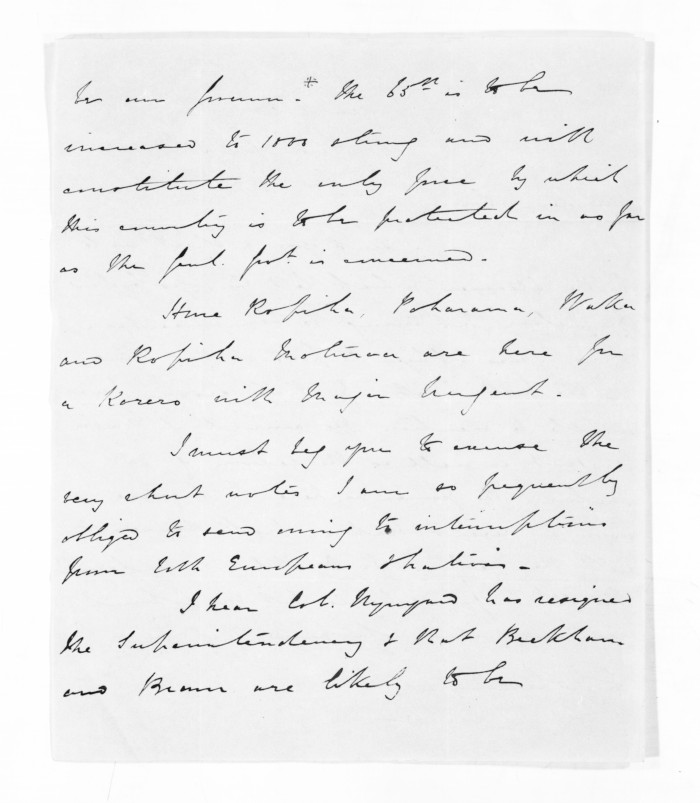 to our * The 65th is to be
increased to 1000 strong and will
constitute the only force by which
this country is to be protected in as far
as the Genl. Govt. is concerned.
Hone Ropiha, Poharama, Waka
and Ropiha Moturoa are here for
a Korero with Major Nugent.
I must beg you to excuse the
very short notes I am so frequently
obliged to send owing to interruptions
from both Europeans & natives.
I hear Col. Wynyard has resigned
the Superintendency & that Beckham
and Brown are likely to be